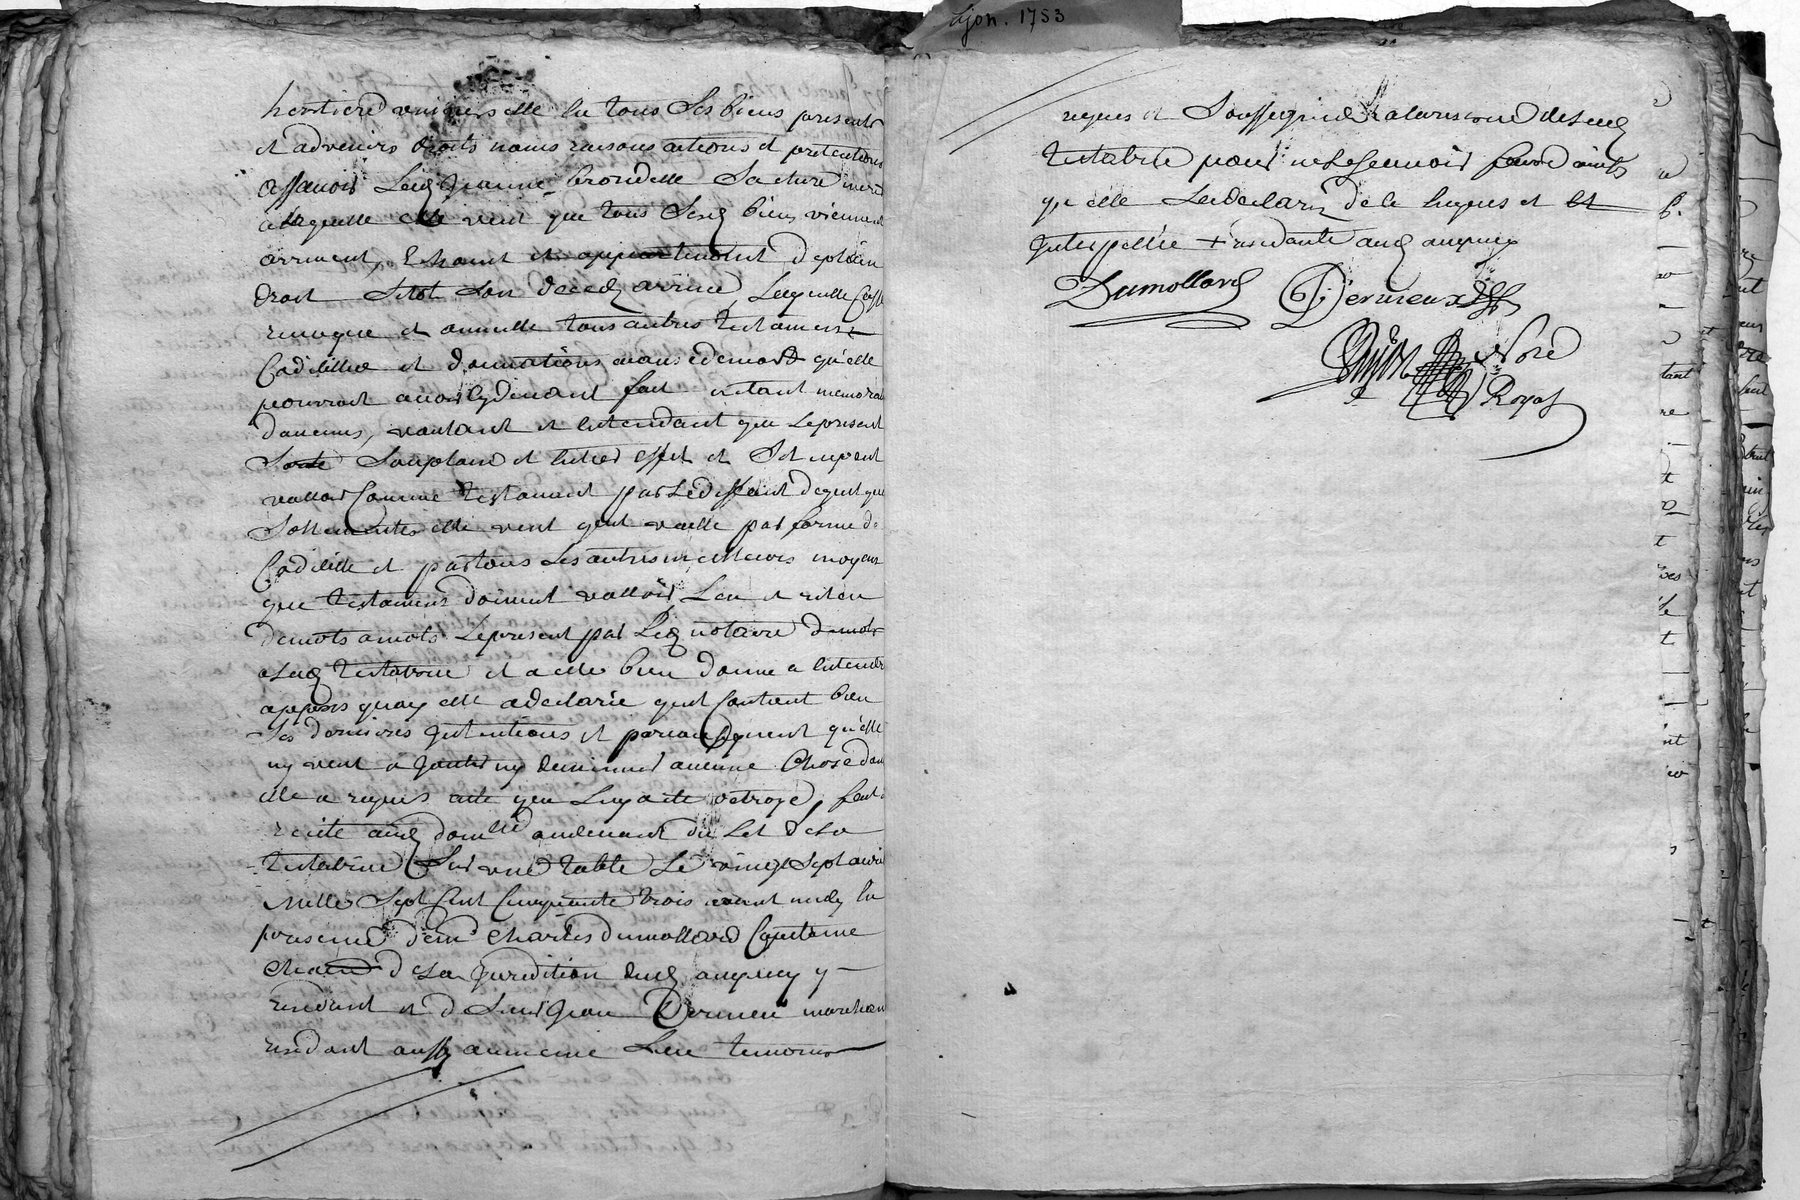 Lyon. 1753
heritiere universelle en tous ses biens presents
et advenirs droits noms raisons actions et pretentions
assavoir Jeanne Brondelle sa chere mere
a laquelle elle veut que tous biens viennent
arrivent, echoient et appartiennent de plein
droit sitot son decedz arrivé, laquelle casse
revoque et annulle tous autres testaments
Codicilles et donnations a cause de mort qu'elle
pourroit avoir cy devant fait n'etant memorati
d'aucuns, voulant et entendant que le present
sorte son plain et entier effet et s'il ne peut
valloir comme testament par le deffaut de quelque
sollemnités elle veut qu'il vaille par forme de
Codicille et par tous les autres meilleurs moyens
que testaments doivent valloir, Leu et releu
de mots a mots le present par notaire
testatrice et a elle bien donné a entendre
appres quoy elle a declaré qu'il contient bien
ses dernieres intentions et par consequent qu'elle
ny veut ajouter ny diminuer aucune chose dont
elle a requis acte que luy ait octroyé, fait
recité domlle au devant du let de la
testatrice sur une table le vingt sept avril
mille sept cent cinquante trois avant midy en
presence de mr Charles Dumollard Capitaine
de la juridition anquey y
residant et de sieur Jean Dermieu marchand
residant aussy au meme lieu temoins
requis et soussignés
testatrice pour ne le sçavoir faire ainsy
qu'elle l'a declaré de ce enquis et
interpellée + residante
Dumollard Dervieux
Guyon Nore
Royal